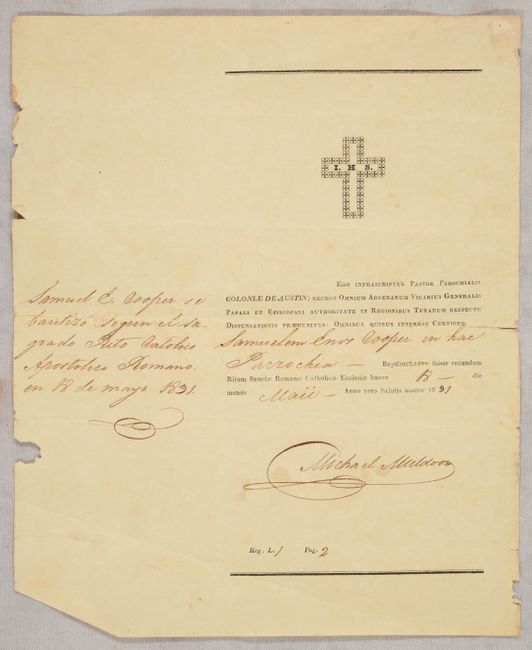 I. H. S.
Ego infrascriptus Pastor Parochialis
COLONIÆ DE AUSTIN; necnon Omnium Advenarum Vicarius Generalis
Papali et Episcopali authoritate in Regionibus Texarum respectu
Dispensationis præmunitus: Omnibus quibus interest Certiorq.
Samuelem Enos Cooper in hac
Parrochia — Baptizatum fuisse secundum
Ritum Sanctæ Romanæ Catholicæ Ecclesiæ hacce 18 — die
mensis Maii — Anno vero Salutis nostræ 1831
Michael Muldoon
Reg. L. 1 Pag. 2
Samuel E. Cooper se
bautizó segun el Sa-
grado Rito Catolico
Apostolico Romano.
en 18 de mayo 1831.